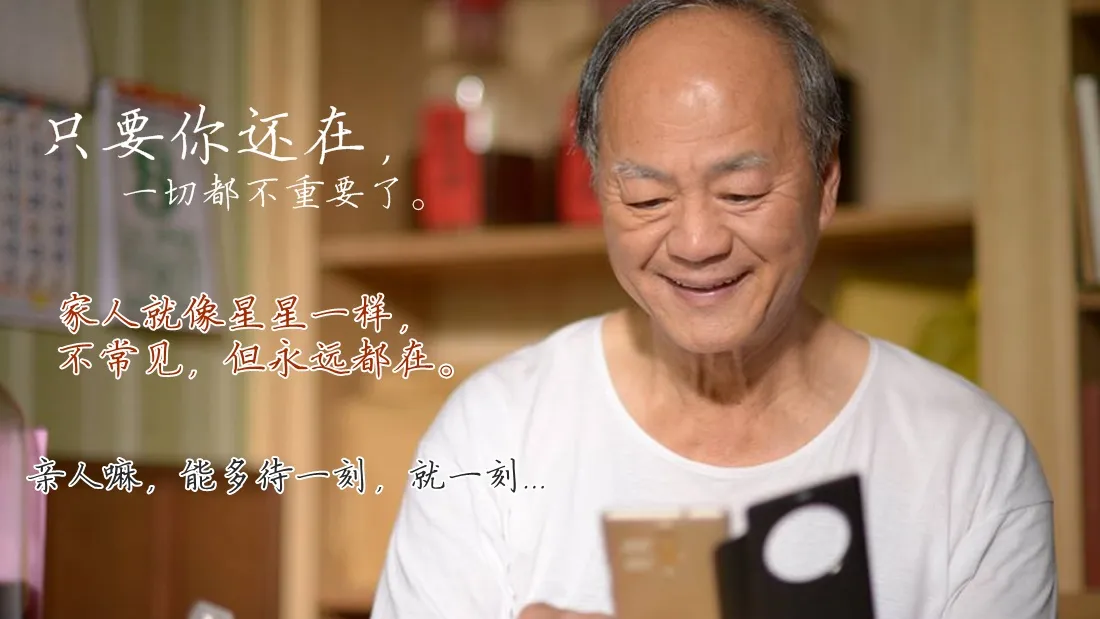 只要你还在，
一切都不重要了。
家人就像星星一样，
不常见，但永远都在。
亲人嘛，能多待一刻，就一刻...